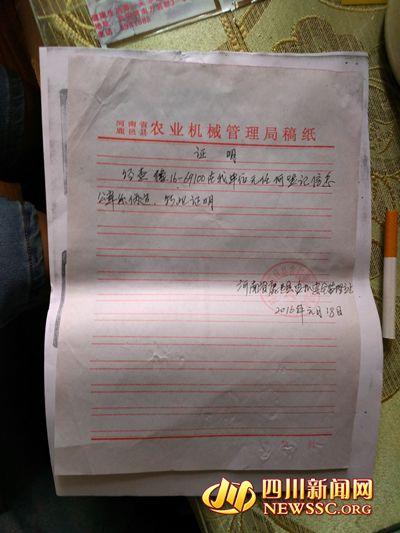 河南省
鹿邑县 农业机械管理局稿纸
证 明
兹查 豫16-69100在我单位无任何登记信息
公章系伪造,特此证明
河南省鹿邑县农机安全监理站
2016年元月18日
四川新闻网
NEWSSC.ORG